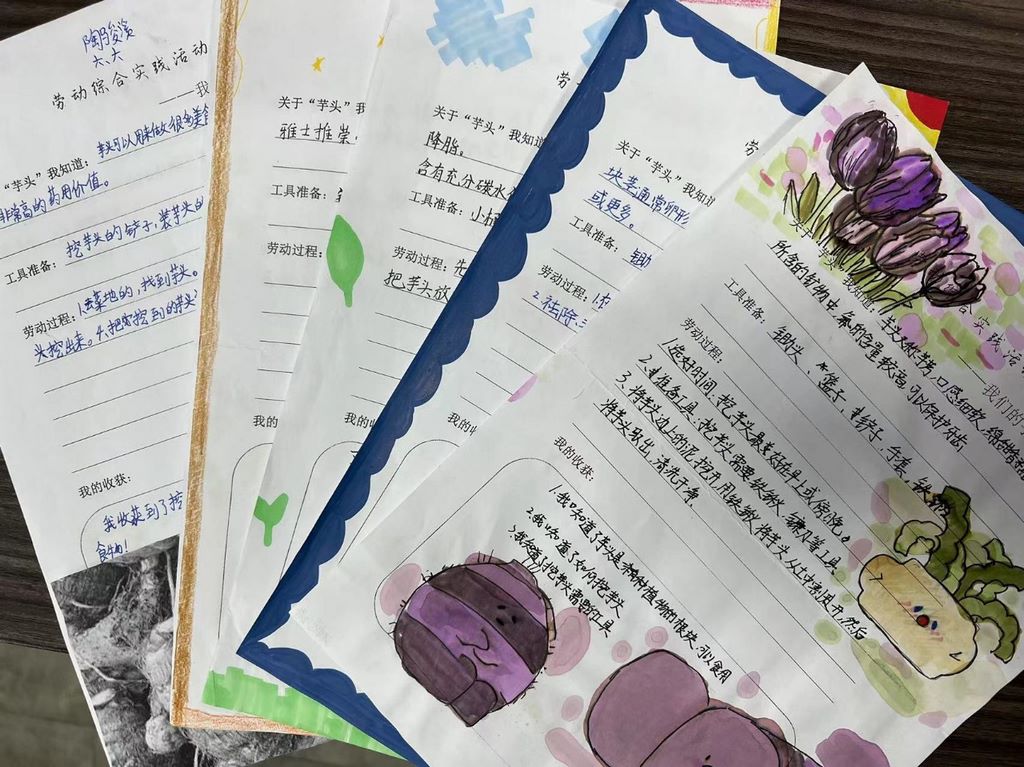 陶骏溪
六、六
劳动综合实践活动
——我
"芋头"我知道：芋头可以用来做很多美食
非常高的药用价值。
工具准备：挖芋头的铲子、装芋头的
劳动过程：1.去菜地的，找到芋头。
头挖出来。4.把挖到的芋头
我的收获：
我收获到了挖
食物！
关于"芋头"我
雅士推崇
工具准备：
劳动过程：
我的
劳
关于"芋头"我知
降脂。
含有充分碳水
工具准备：小
劳动过程：先
把芋头放
我的收
劳
关于"芋头"我知道
块茎通常卵形
或更多。
工具准备：锄
劳动过程：1.
2.祛除
合实践活
——我们的
我知道：芋头又称芋艿，口感细软，绵甜
所含的矿物中，氟的含量较高，可以保护牙齿
工具准备：锄头、篮子、铲子、手套、铁
劳动过程：
1.选好时间：挖芋头最好在早上或傍晚。
2.准备工具：挖芋头需要铁锹、等工具。
3.将芋头边上的泥挖开，用铁锹将芋头从土中剥离开，然后
将芋头取出，清洗干净。
我的收获：
1.我知道了芋头是一种植物的根块，可以食用
2.我知道了如何挖芋头
3.我知道了挖芋头需要的工具